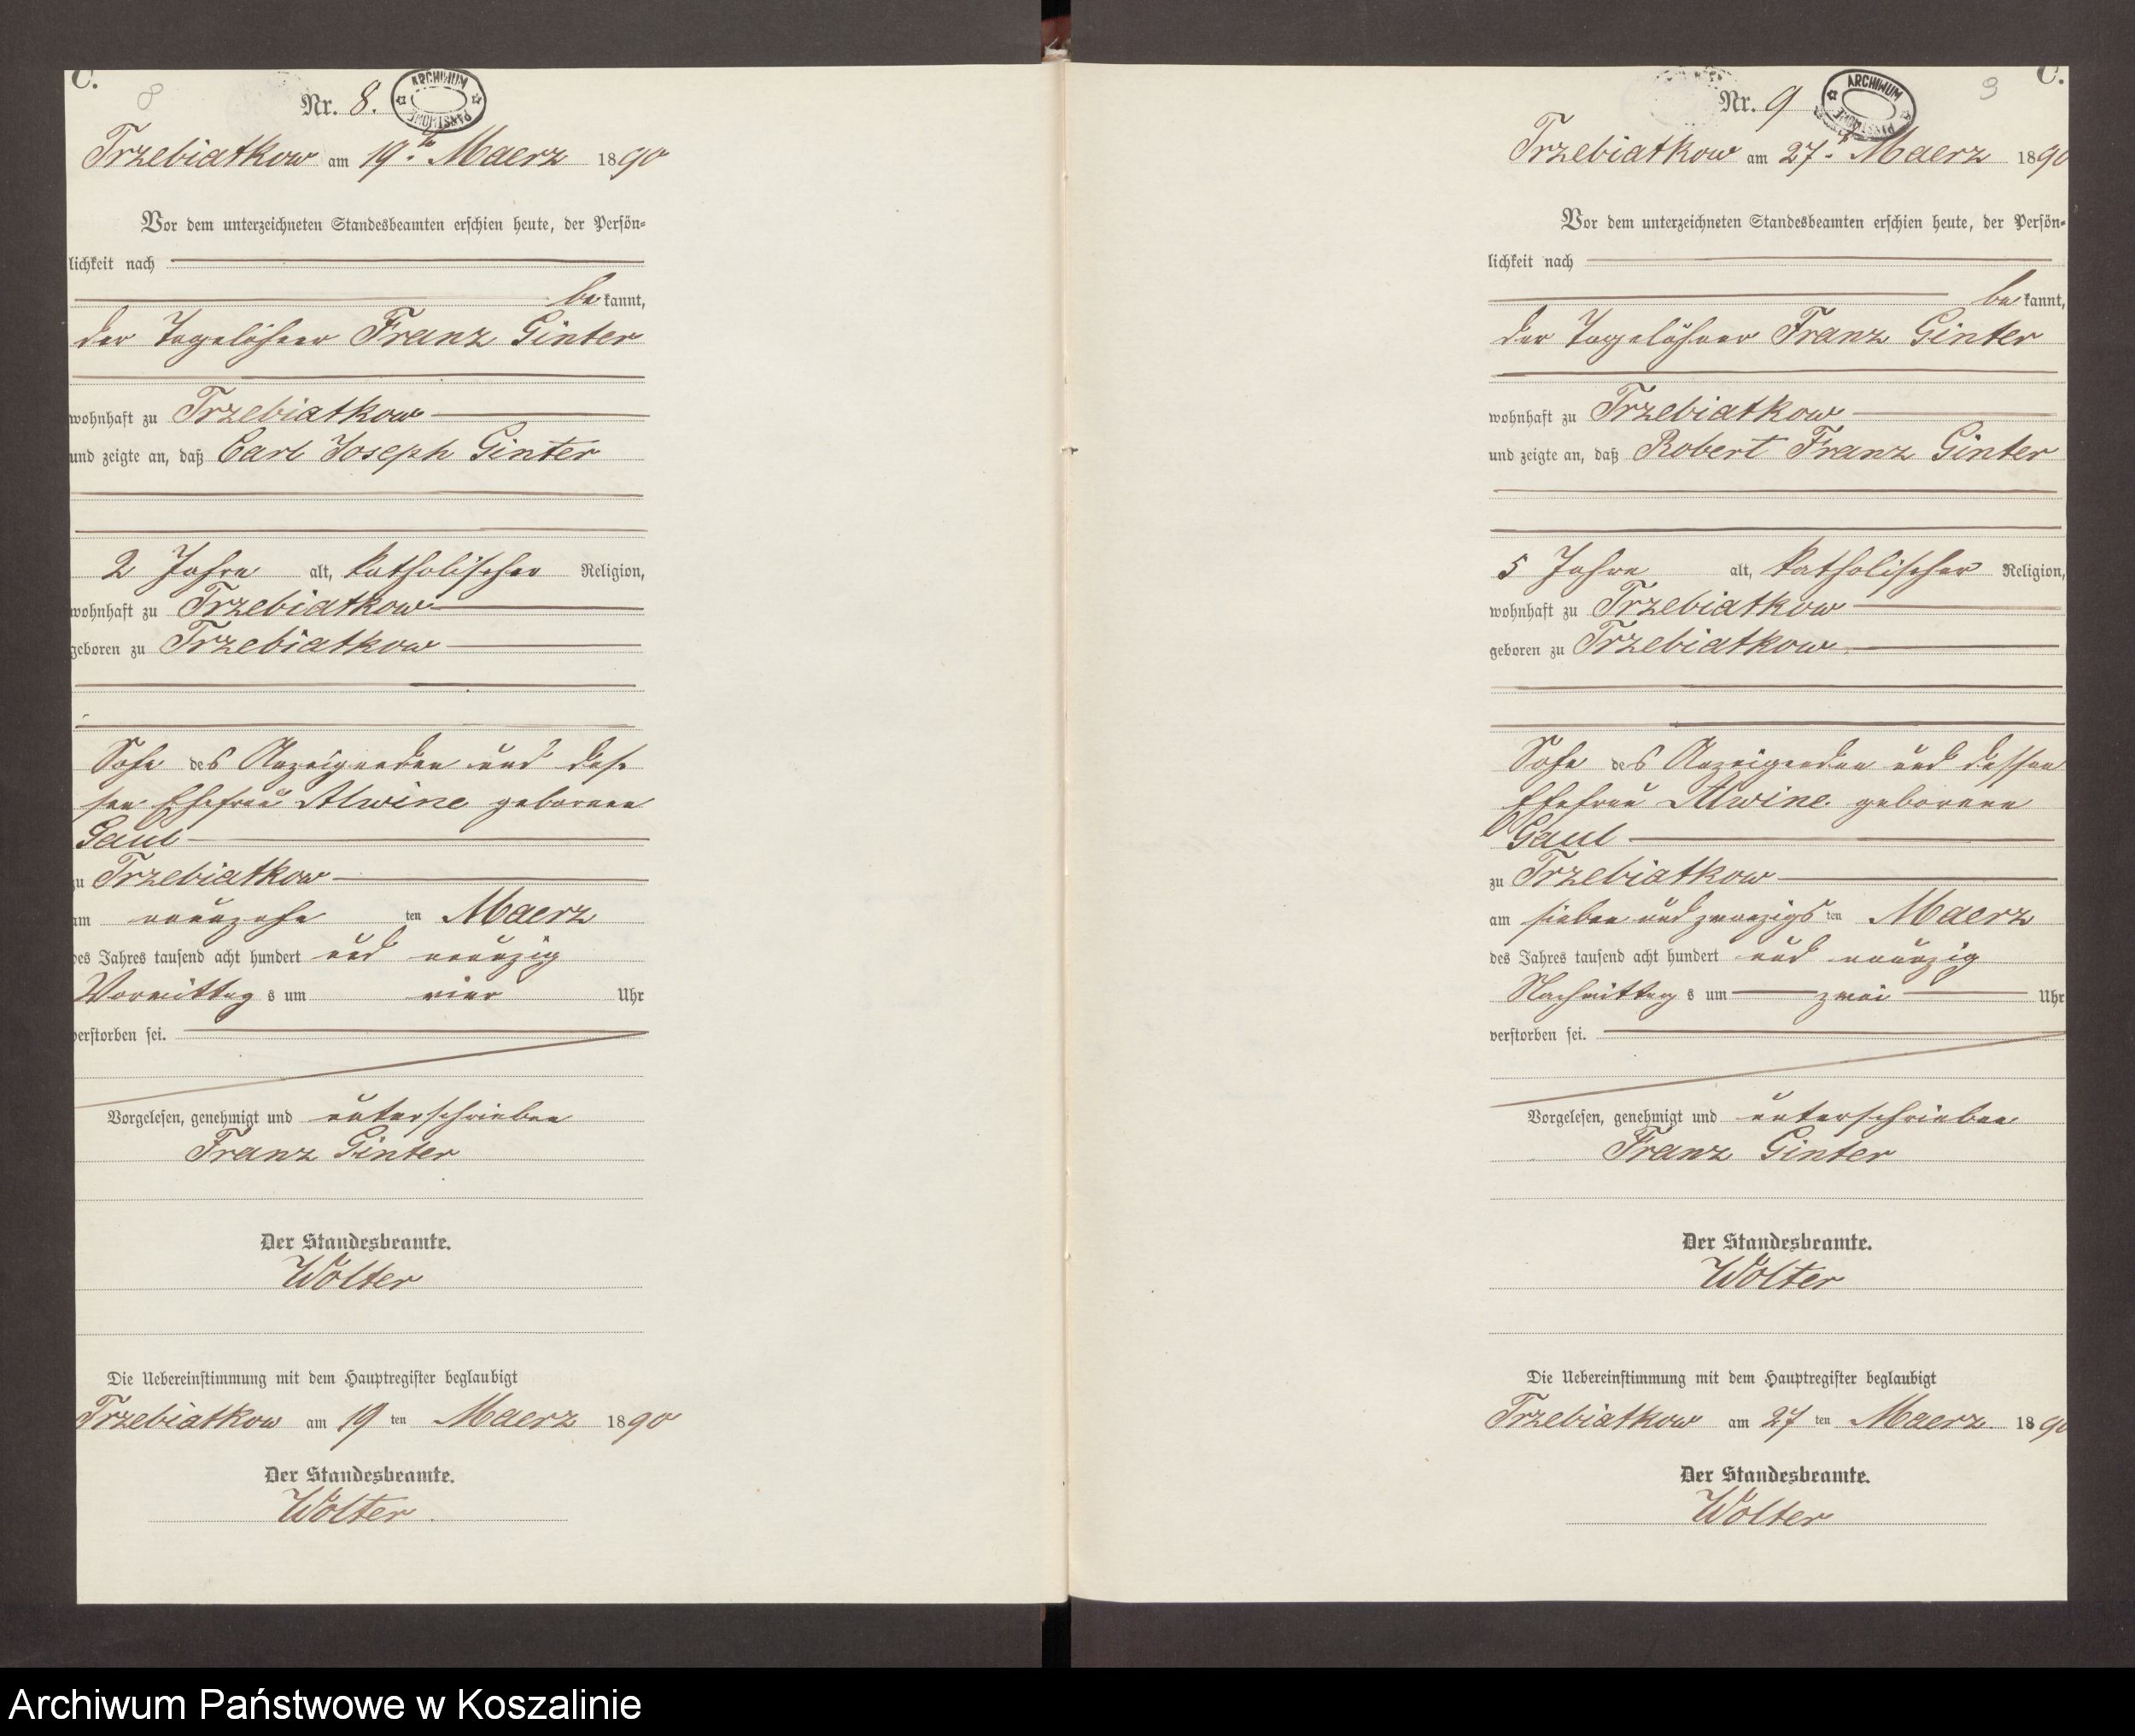 C.
8
Nr. 8.
ARCHIWUM PAŃSTWOWE
Trzebiatkow am 19.ten Maerz 1890
Vor dem unterzeichneten Standesbeamten erschien heute, der Persön-
lichkeit nach
be kannt,
der Tagelöhner Franz Ginter
wohnhaft zu Trzebiatkow
und zeigte an, daß Carl Joseph Ginter
2 Jahre alt, katholischer Religion,
wohnhaft zu Trzebiatkow
geboren zu Trzebiatkow
Sohn des Anzeigenden und des-
sen Ehefrau Alwine geborenen
Gaul
zu Trzebiatkow
am neunzehn ten Maerz
des Jahres tausend acht hundert und neunzig
Vormittag s um vier Uhr
verstorben sei.
Vorgelesen, genehmigt und unterschrieben
Franz Ginter
Der Standesbeamte.
Wolter
Die Uebereinstimmung mit dem Hauptregister beglaubigt
Trzebiatkow am 19 ten Maerz 1890
Der Standesbeamte.
Wolter.
C.
9
Nr. 9
ARCHIWUM PAŃSTWOWE
Trzebiatkow am 27.t Maerz 1890
Vor dem unterzeichneten Standesbeamten erschien heute, der Persön-
lichkeit nach
be kannt,
der Tagelöhner Franz Ginter
wohnhaft zu Trzebiatkow
und zeigte an, daß Robert Franz Ginter
5 Jahre alt, katholischer Religion,
wohnhaft zu Trzebiatkow
geboren zu Trzebiatkow
Sohn des Anzeigenden und dessen
Ehefrau Alwine geborenen
Gaul
zu Trzebiatkow
am sieben und zwanzigs ten Maerz
des Jahres tausend acht hundert und neunzig
Nachmittag s um zwei Uhr
verstorben sei.
Vorgelesen, genehmigt und unterschrieben
Franz Ginter
Der Standesbeamte.
Wolter
Die Uebereinstimmung mit dem Hauptregister beglaubigt
Trzebiatkow am 27 ten Maerz 1890
Der Standesbeamte.
Wolter
Archiwum Państwowe w Koszalinie